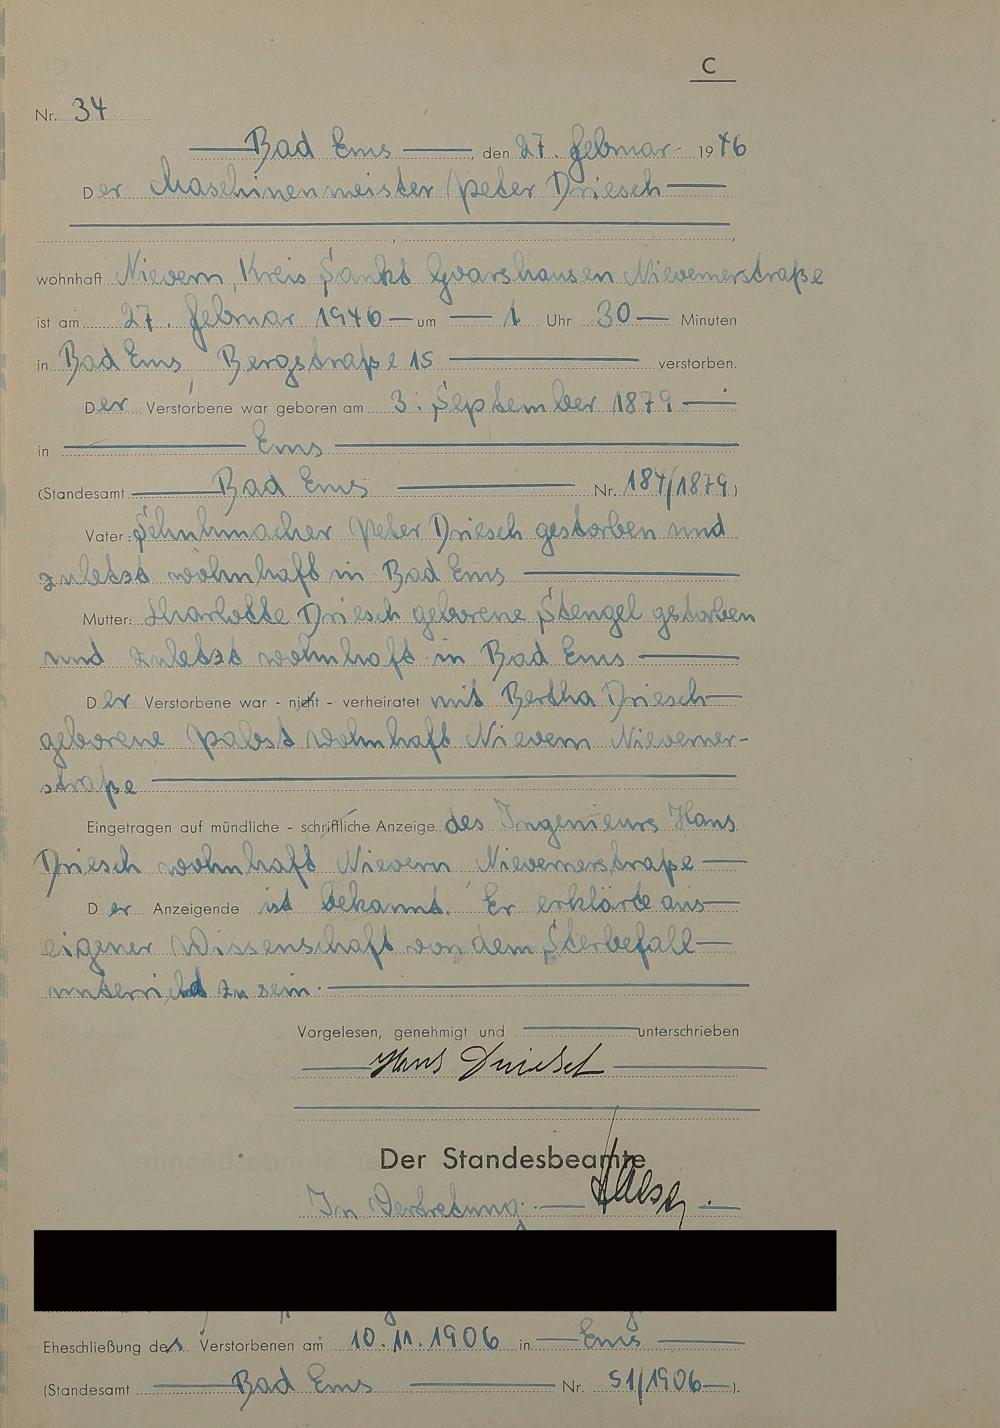 C
Nr. 34
Bad Ems, den 27. Februar 1946
Der Maschinenmeister Peter Driesch
wohnhaft Nievern, Kreis Sankt Goarshausen Nievernerstraße
ist am 27. Februar 1946 um 1 Uhr 30 Minuten
in Bad Ems, Bergstraße 15 verstorben.
Der Verstorbene war geboren am 3. September 1879
in Ems
(Standesamt Bad Ems Nr. 184/1879)
Vater: Schuhmacher Peter Driesch gestorben und
zuletzt wohnhaft in Bad Ems
Mutter: Charlotte Driesch geborene Stengel gestorben
und zuletzt wohnhaft in Bad Ems
Der Verstorbene war - nicht - verheiratet mit Bertha Driesch
geborene Pabst wohnhaft Nievern Nieverner-
straße
Eingetragen auf mündliche - schriftliche Anzeige des Ingenieurs Hans
Driesch wohnhaft Nievern, Nievernerstraße
Der Anzeigende ist bekannt. Er erklärte aus
eigener Wissenschaft von dem Sterbefall
unterricht zu sein.
Vorgelesen, genehmigt und unterschrieben
Hans Driesch
Der Standesbeamte
In Vertretung:
Eheschließung des Verstorbenen am 10.11.1906 in Ems
(Standesamt Bad Ems Nr. 51/1906).